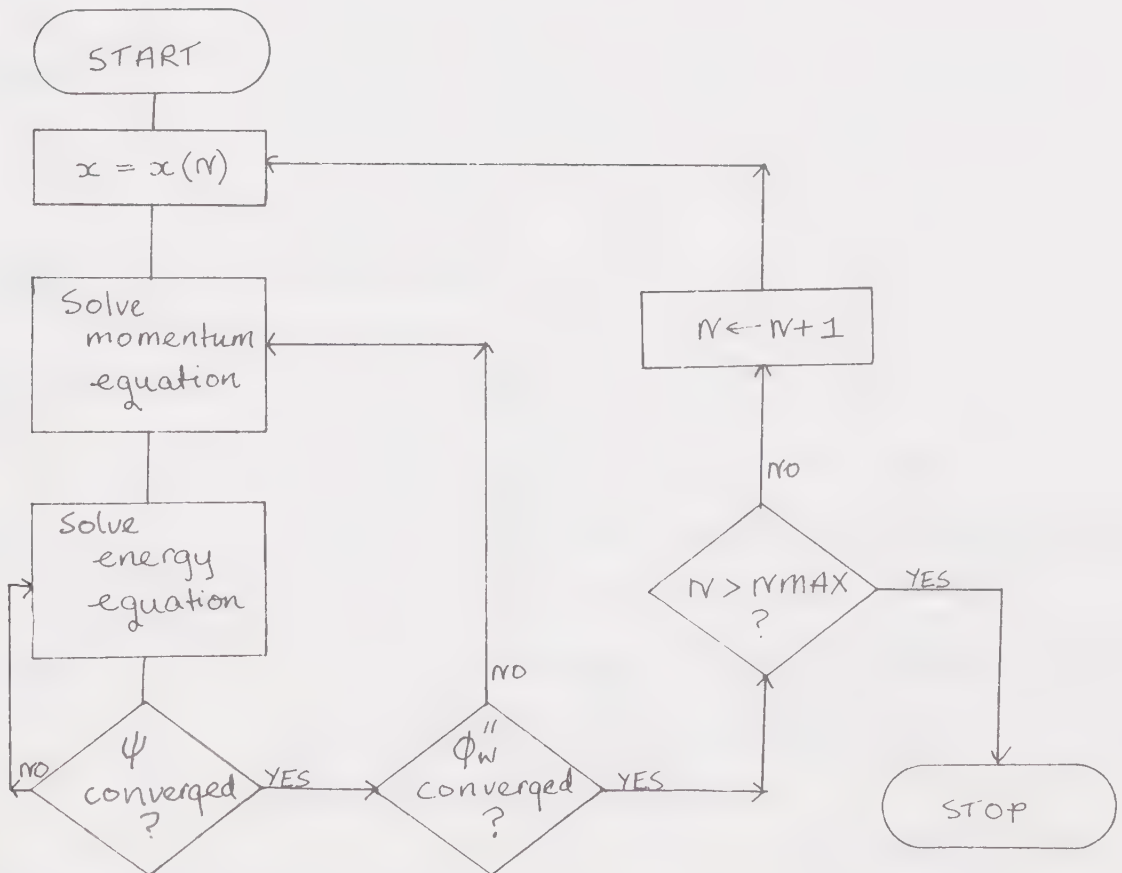 START
x = x(N)
Solve
momentum
equation
Solve
energy
equation
NO
ψ
converged
?
YES
φ″w
converged
?
NO
YES
N > NMAX
?
NO
YES
N ← N + 1
STOP